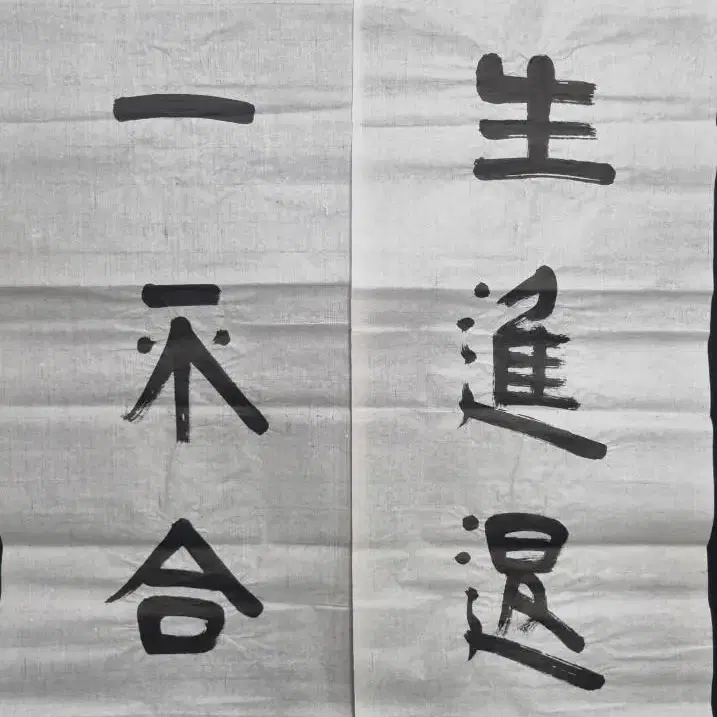 生進退
一不合